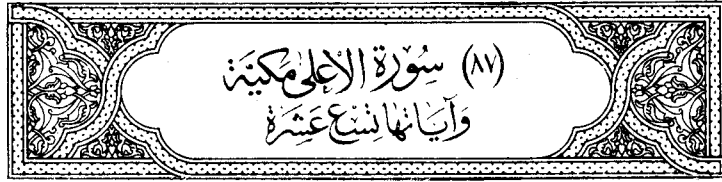 (٨٧) سُورَة الأعلى مَكيَّة
وَآيَاتهَا تِسْع عَشَرَة